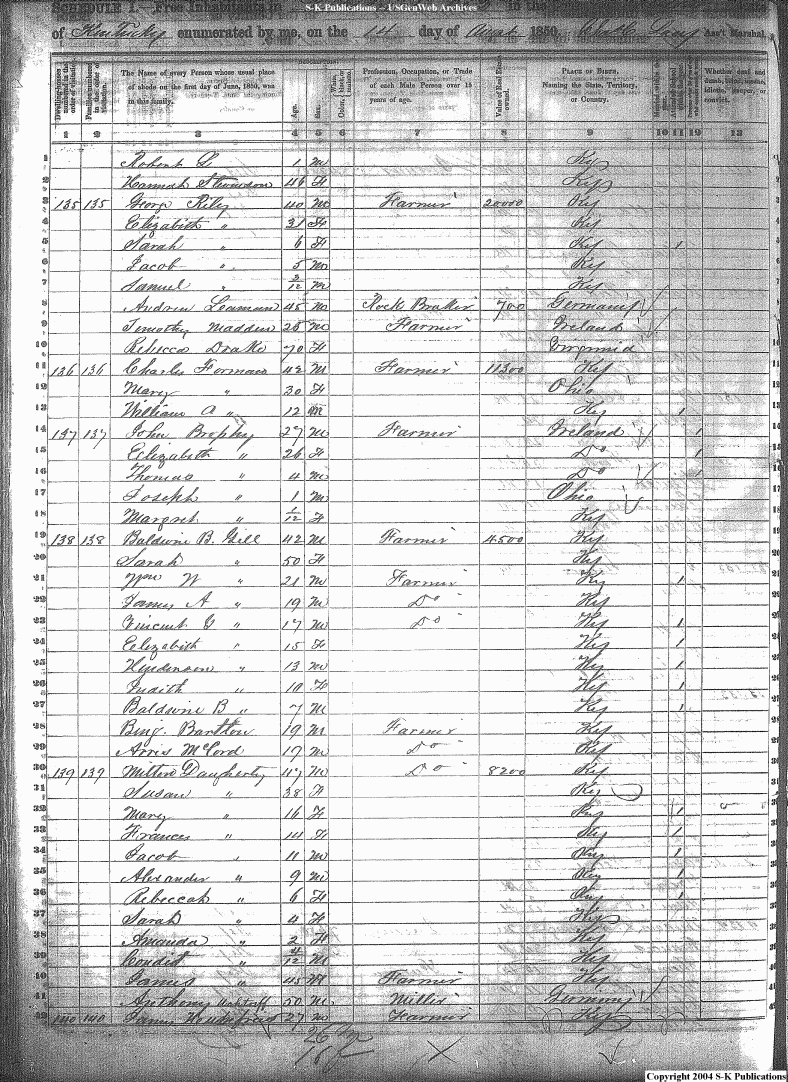 S-K Publications – USGenWeb Archives
SCHEDULE I.—Free Inhabitants in in the
of Kentucky enumerated by me, on the 14 day of August 1850. Ass't Marshal.
Dwelling-houses numbered in the order of visitation. Families numbered in the order of visitation. The Name of every Person whose usual place of abode on the first day of June, 1850, was in this family. Age. Sex. Color, Profession, Occupation, or Trade of each Male Person over 15 years of age. Value of Real Estate owned. PLACE OF BIRTH, Naming the State, Territory, or Country. Whether deaf and dumb, blind, insane, idiotic, pauper, or convict.
1 2 3 4 5 6 7 8 9 10 11 12 13
1 Robert L 1 M Ky
2 Hannah 46 F Ky
3 135 135 George Riley 40 M Farmer 20000 Ky
4 Elizabeth " 31 F Ky
5 Sarah " 6 F Ky 1
6 Jacob " 5 M Ky
7 Samuel " 2/12 M Ky
8 Andrew Leaman 45 M Rock Braker 700 Germany
9 Timothy Madden 25 M Farmer Ireland
10 Rebecca Drake 70 F Virginia
11 136 136 Charles Forman 42 M Farmer 11300 Ky
12 Mary " 30 F Ohio
13 William A " 12 M Ky 1
14 137 137 John Brophy 27 M Farmer Ireland 1
15 Elizabeth " 26 F Do 1
16 Thomas " 4 M Do 1
17 Joseph " 1 M Ohio
18 Margret " 1/12 F Ky
19 138 138 Baldwin B. Gill 42 M Farmer 4500 Ky
20 Sarah " 50 F Ky
21 Wm W " 21 M Farmer Ky 1
22 James A " 19 M Do Ky
23 Vincent G " 17 M Do Ky 1
24 Elizabeth " 15 F Ky 1
25 " 13 M Ky 1
26 Judith " 10 F Ky 1
27 Baldwin B " 7 M Ky 1
28 Benj. Bartlow 19 M Farmer Ky
29 McCord 19 M Do Ky
30 139 139 Milton Daugherty 47 M Do 8200 Ky
31 Susan " 38 F Ky
32 Mary " 16 F Ky 1
33 Frances " 14 F Ky 1
34 Jacob " 11 M Ky 1
35 Alexander " 9 M Ky 1
36 Rebeccah " 6 F Ky 1
37 Sarah " 4 F Ky
38 Amanda " 2 F Ky
39 Condit " M Ky
40 James " 45 M Farmer Ky
41 Anthony 50 M Miller Germany
42 140 140 James 27 M Farmer Ky
26 M
16 F
Copyright 2004 S-K Publications